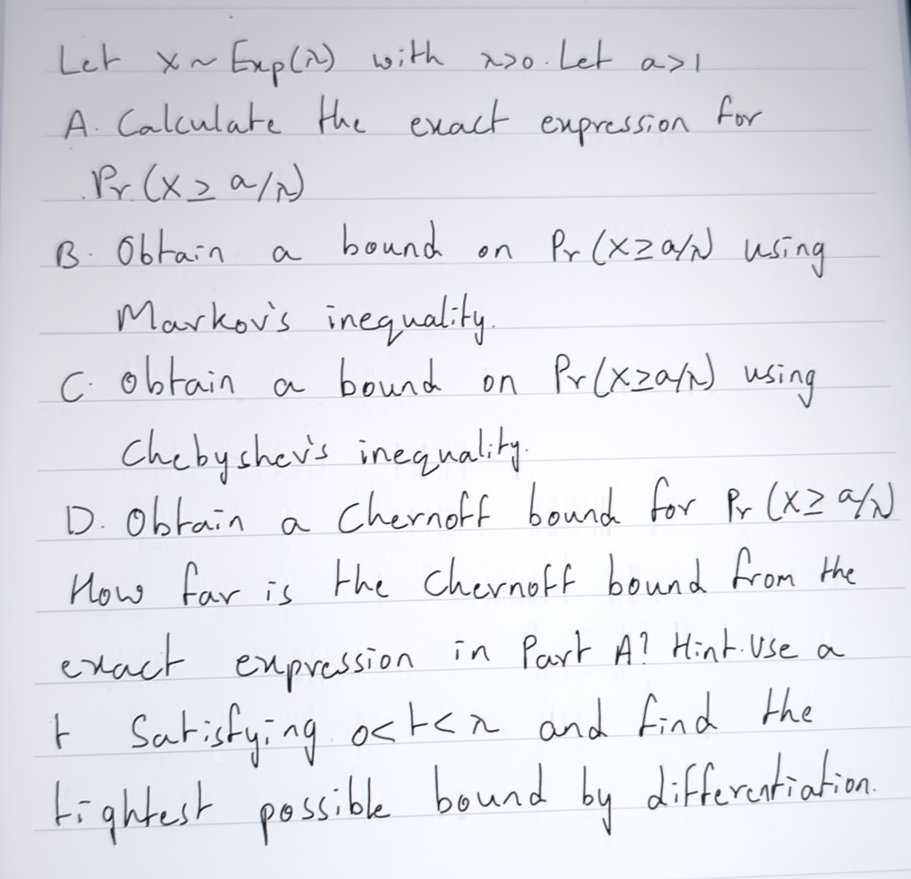 Let x ~ Exp(λ) with λ>0. Let a>1
A. Calculate the exact expression for
Pr. (X ≥ a/λ)
B. Obtain a bound on Pr (X≥a/λ) using
Markov's inequality.
C. obtain a bound on Pr(X≥a/λ) using
Chebyshev's inequality.
D. Obtain a Chernoff bound for Pr (X≥ a/λ)
How far is the Chernoff bound from the
exact expression in Part A? Hint. Use a
t Satisfying 0<t<λ and find the
tightest possible bound by differentiation.